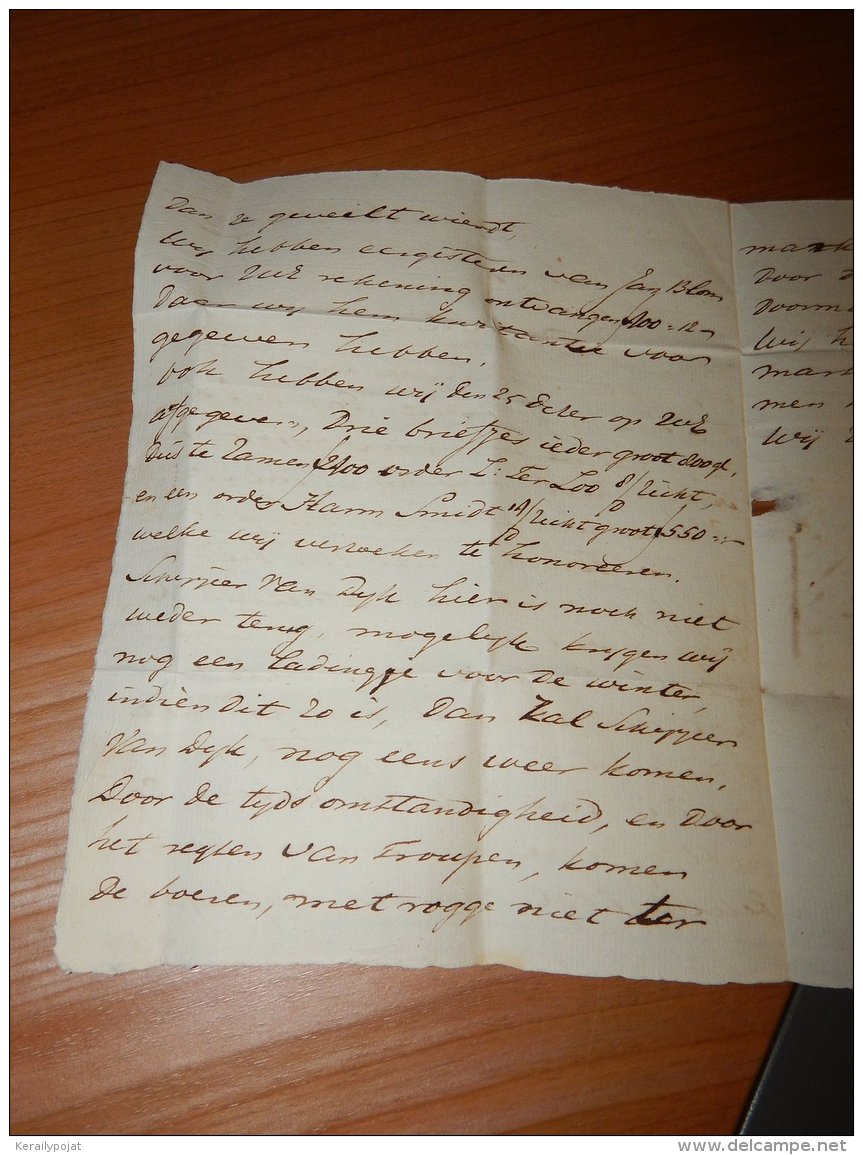 Dan ze geveilt wierdt,
Wij hebben eergisteren van Jan Blom
voor UwE rekening ontvangen ƒ900=12=
Daar wij hem kwitantie voor
gegeven hebben.
ook hebben wij den 25 deser op UwE
afgegeven, Drie briefjes ieder groot 800 gl,
Dus te zamen ƒ2400 order L: Ter Loo 8/D zicht,
en een order Harm Smidt 14/D zicht groot ƒ550=:=
welke wij verzoeken te honoreeren.
Schipper van Dijk hier is noch niet
weder terug, mogelijk krijgen wij
nog een ladingje voor de winter,
indien Dit zo is, Dan zal Schipper
Van Dijk, nog eens weer komen,
Door de tijds omstandigheid, en Door
het reysen van Troupen, komen
De boeren, met rogge niet ter
mark
Door
Doorm
Wij h
mark
men
Wij
Kerailypojat
www.delcampe.net